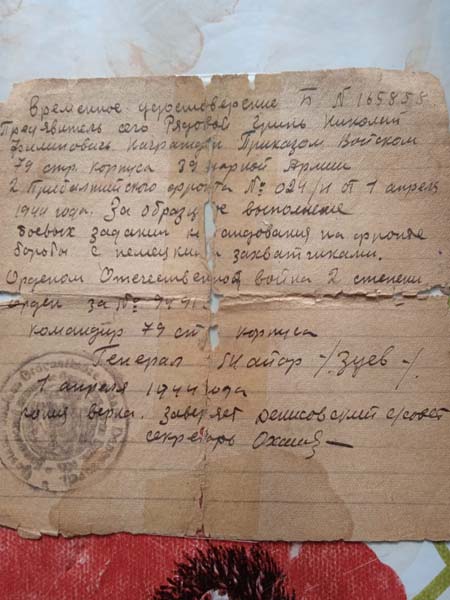 Временное удостоверение Б № 165858
Предъявитель сего Рядовой Гринь Николай
Филиппович Награжден Приказом Войскам
79 стр. корпуса Армии
2 Прибалтийского фронта № 024/н от 1 апреля
1944 года. За образцовое выполнение
боевых заданий командования на фронте
борьбы с немецкими захватчиками.
Орденом Отечественной война 2 степени
орден за №
командир 79 ст корпуса
Генерал Майор -/Зуев-/.
1 апреля 1944 года
копия верна. Заверяет Денисовский с/совет
секретарь